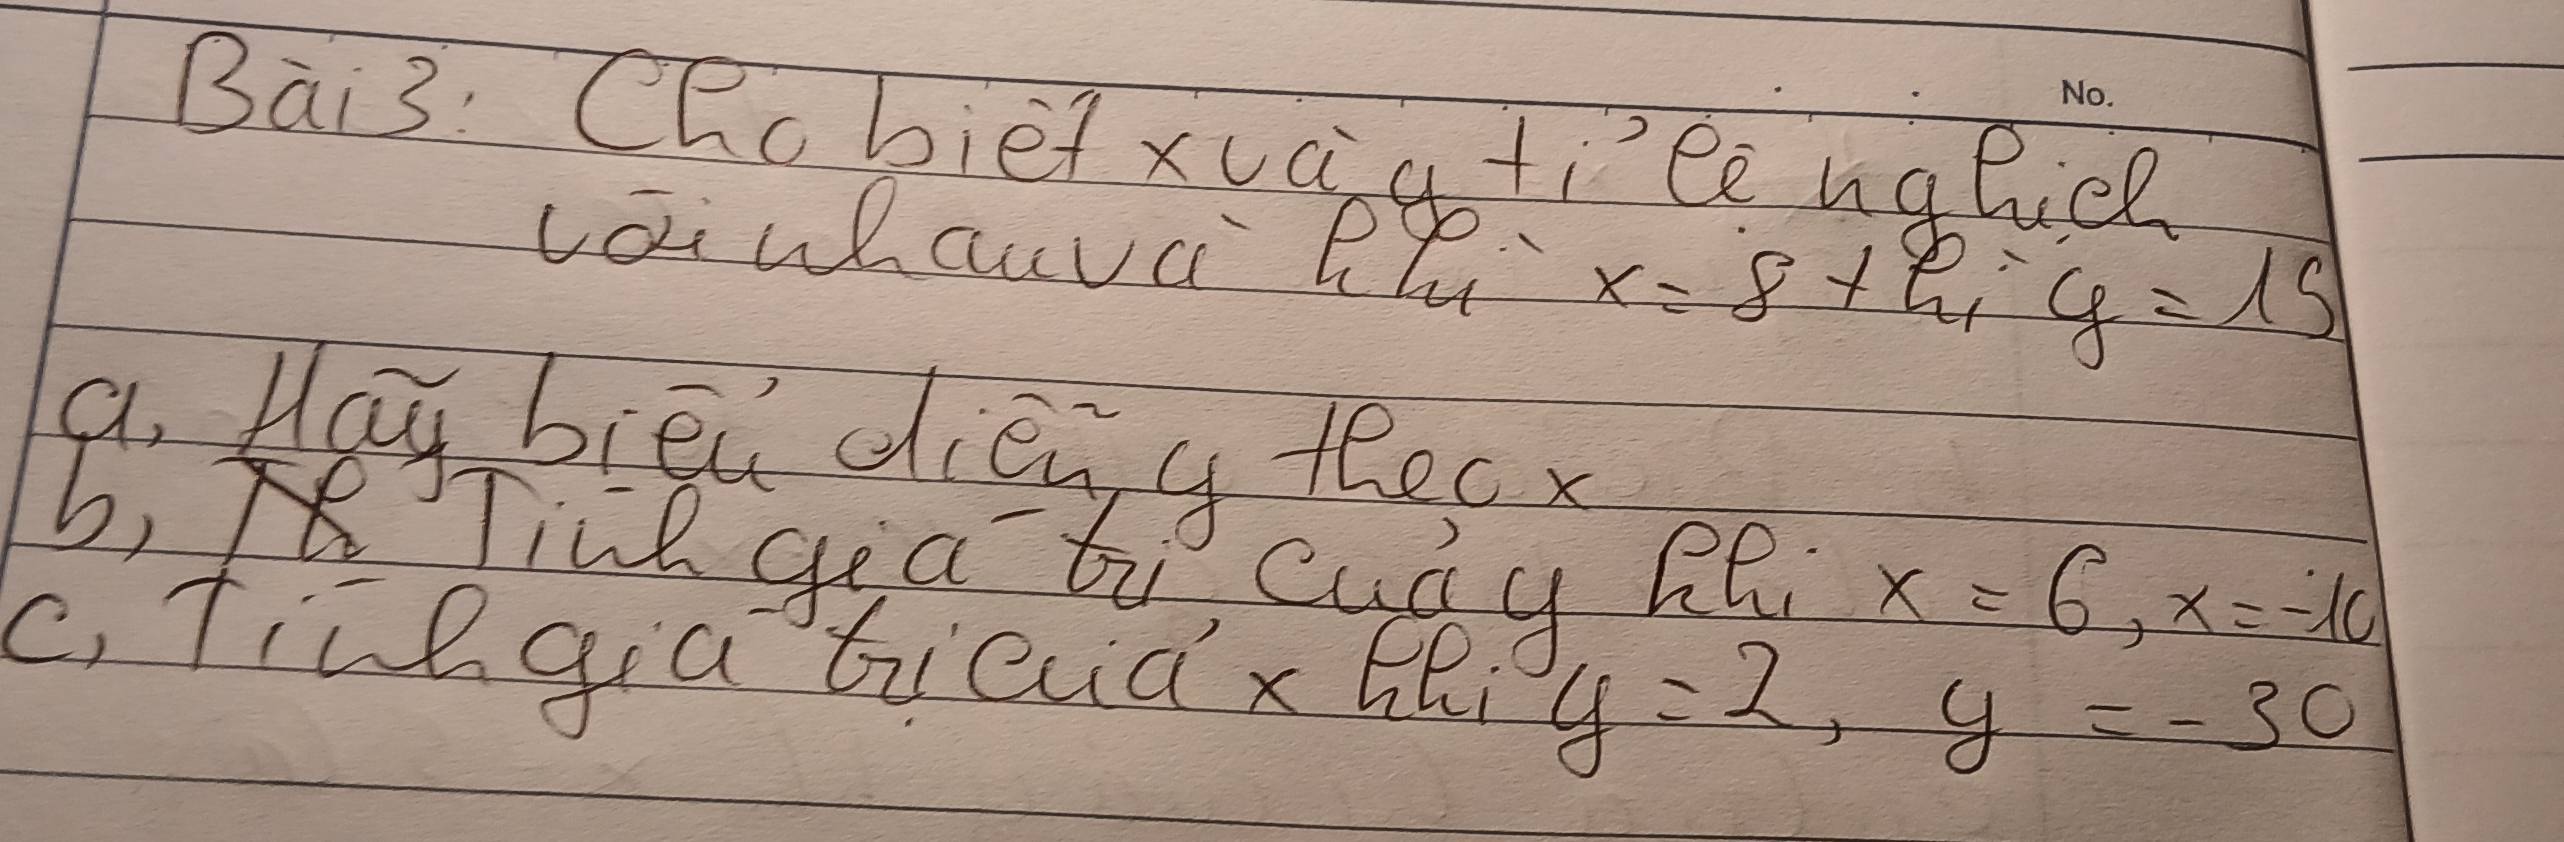 No.
Bài 3: Cho biết x và y tỉ lệ nghịch
với nhau và khi x = 8 thì y = 15
a, Hãy biểu diễn y theo x
b, Tính giá trị của y khi x = 6, x = -10
c, Tính giá trị của x khi y = 2, y = -30